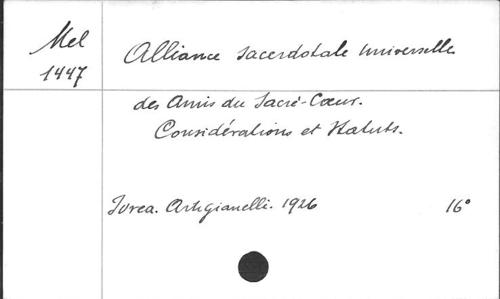 Mel
1447
Alliance sacerdotale universelle
des Amis du Sacré-Cœur.
Considérations et Statuts.
Ivrea. Artigianelli. 1926 16°